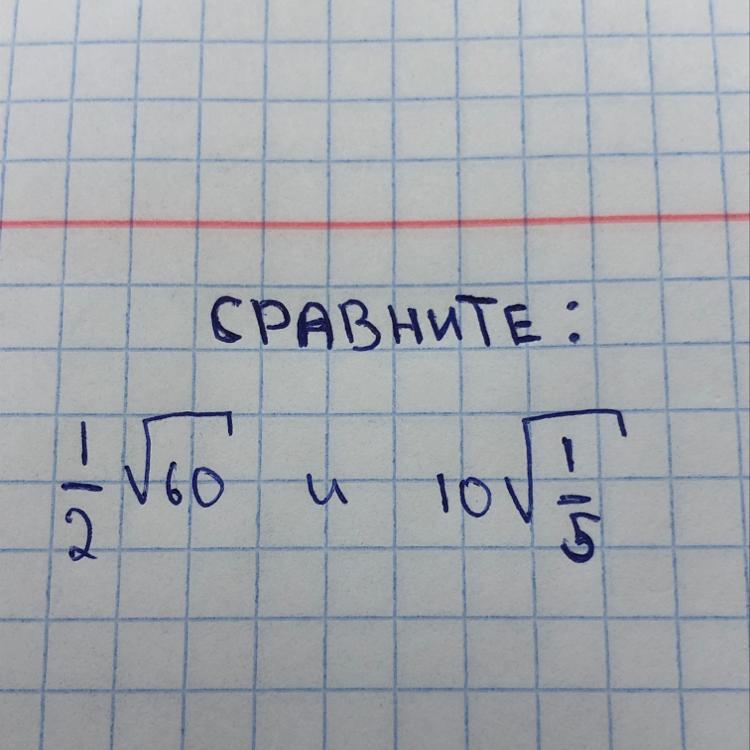 СРАВНИТЕ:
1/2 √60 и 10√1/5